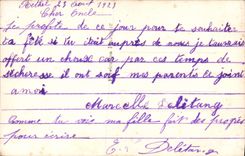 Rethel 23 août 1921
Cher Oncle
Je profite de ce jour pour te souhaiter
ta fête si tu étais auprès de nous je t'aurais
offert un chou car par ces temps de
sécheresse il ont soif mes parents se joint
a moi
Marcelle Delétang
Comme tu vois ma fille fait des progrès
pour écrire
E. Delétang